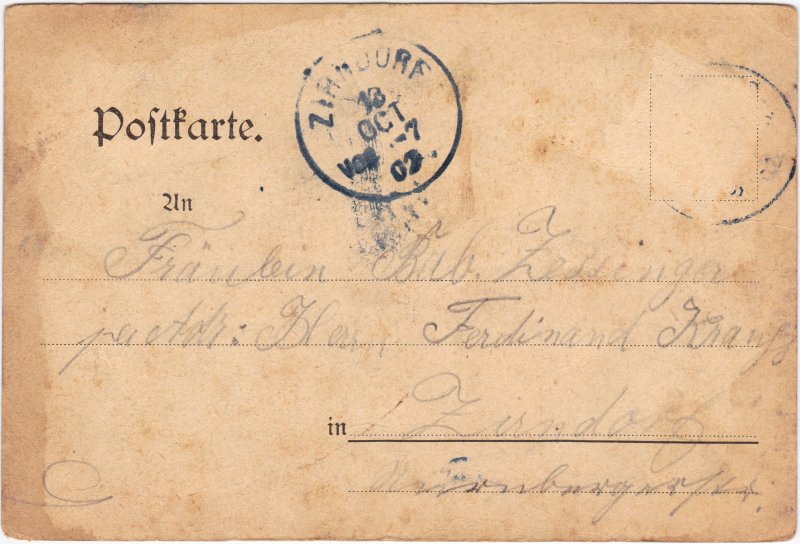 Postkarte.
ZIRNDORF
13
OCT
Vor. 7
02
An
Fräulein Bab. Zessinger
per Adr: Herrn Ferdinand Krauß
in Zirndorf
Nürnbergerstr.